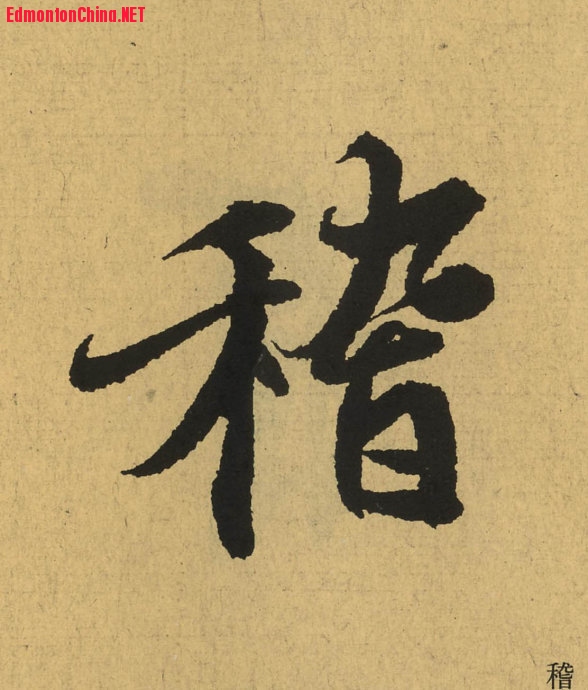 EdmontonChina.NET
稽
稽